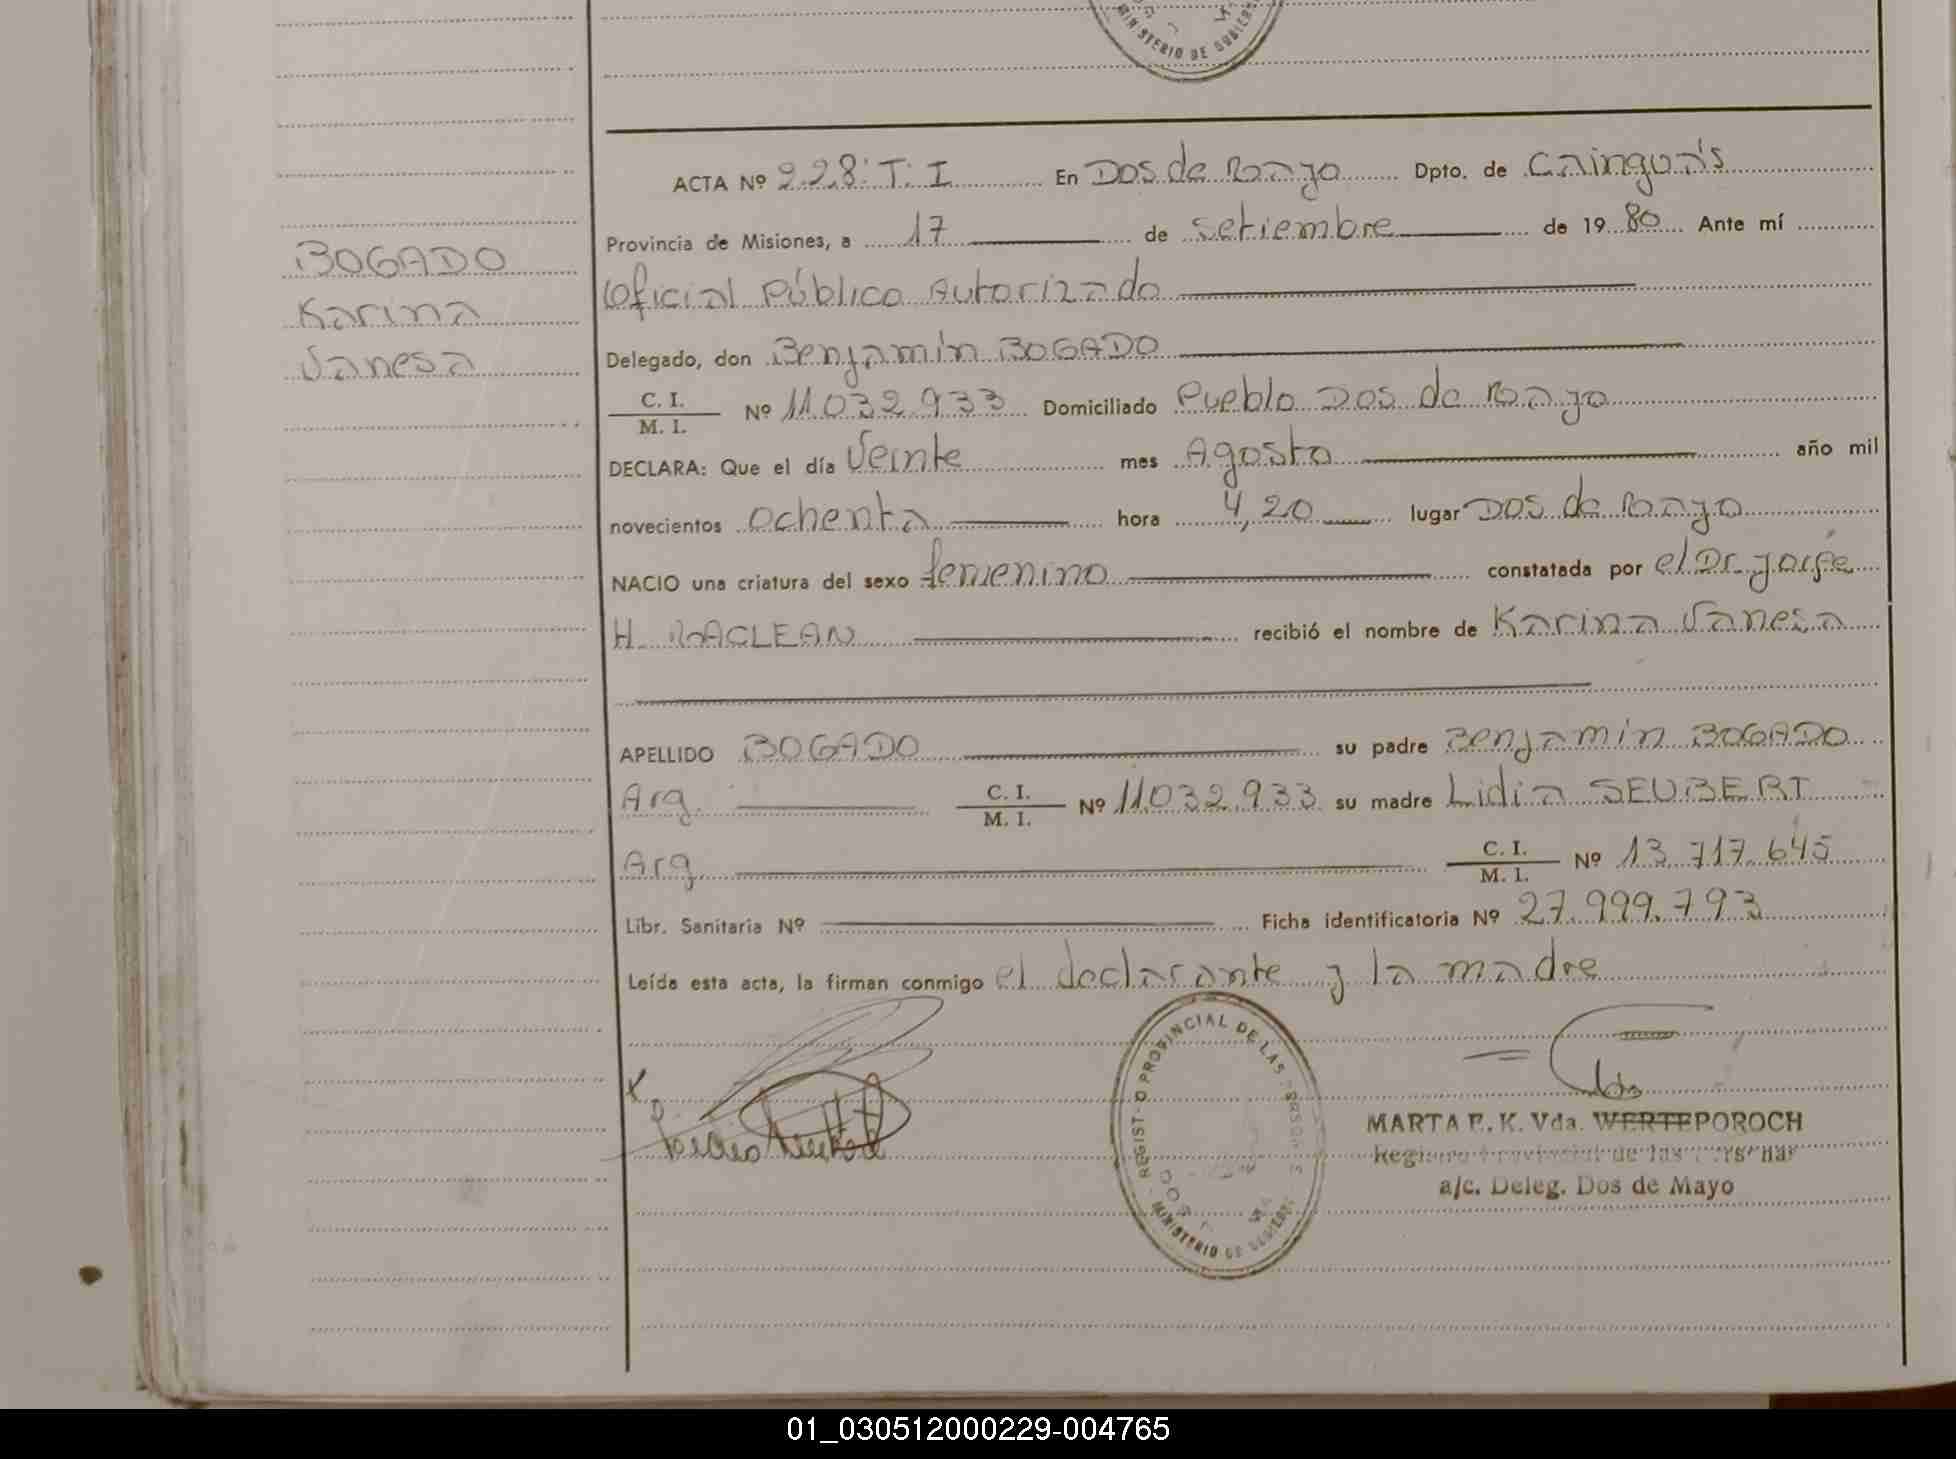 MINISTERIO DE GOBIERNO
ACTA Nº 228. T. I En Dos de Mayo Dpto. de Cainguás
Provincia de Misiones, a 17 de setiembre de 1980 Ante mí
Oficial Público Autorizado
BOGADO
Karina
Vanesa
Delegado, don Benjamín BOGADO
C. I.
M. I. Nº 11.032.933 Domiciliado Pueblo Dos de Mayo
DECLARA: Que el día Veinte mes Agosto año mil
novecientos ochenta hora 4,20 lugar Dos de Mayo
NACIO una criatura del sexo femenino constatada por el Dr. Jorge
H. MACLEAN recibió el nombre de Karina Vanesa
APELLIDO BOGADO su padre Benjamín BOGADO
Arg. C. I.
M. I. Nº 11.032.933 su madre Lidia SEUBERT
Arg. C. I.
M. I. Nº 13.717.645
Libr. Sanitaria Nº Ficha identificatoria Nº 27.999.793
Leída esta acta, la firman conmigo el declarante y la madre
REGISTRO PROVINCIAL DE LAS PERSONAS
MINISTERIO DE GOBIERNO
MARTA E. K. Vda. WERTEPOROCH
Registro Provincial de las Personas
a/c. Deleg. Dos de Mayo
01_030512000229-004765